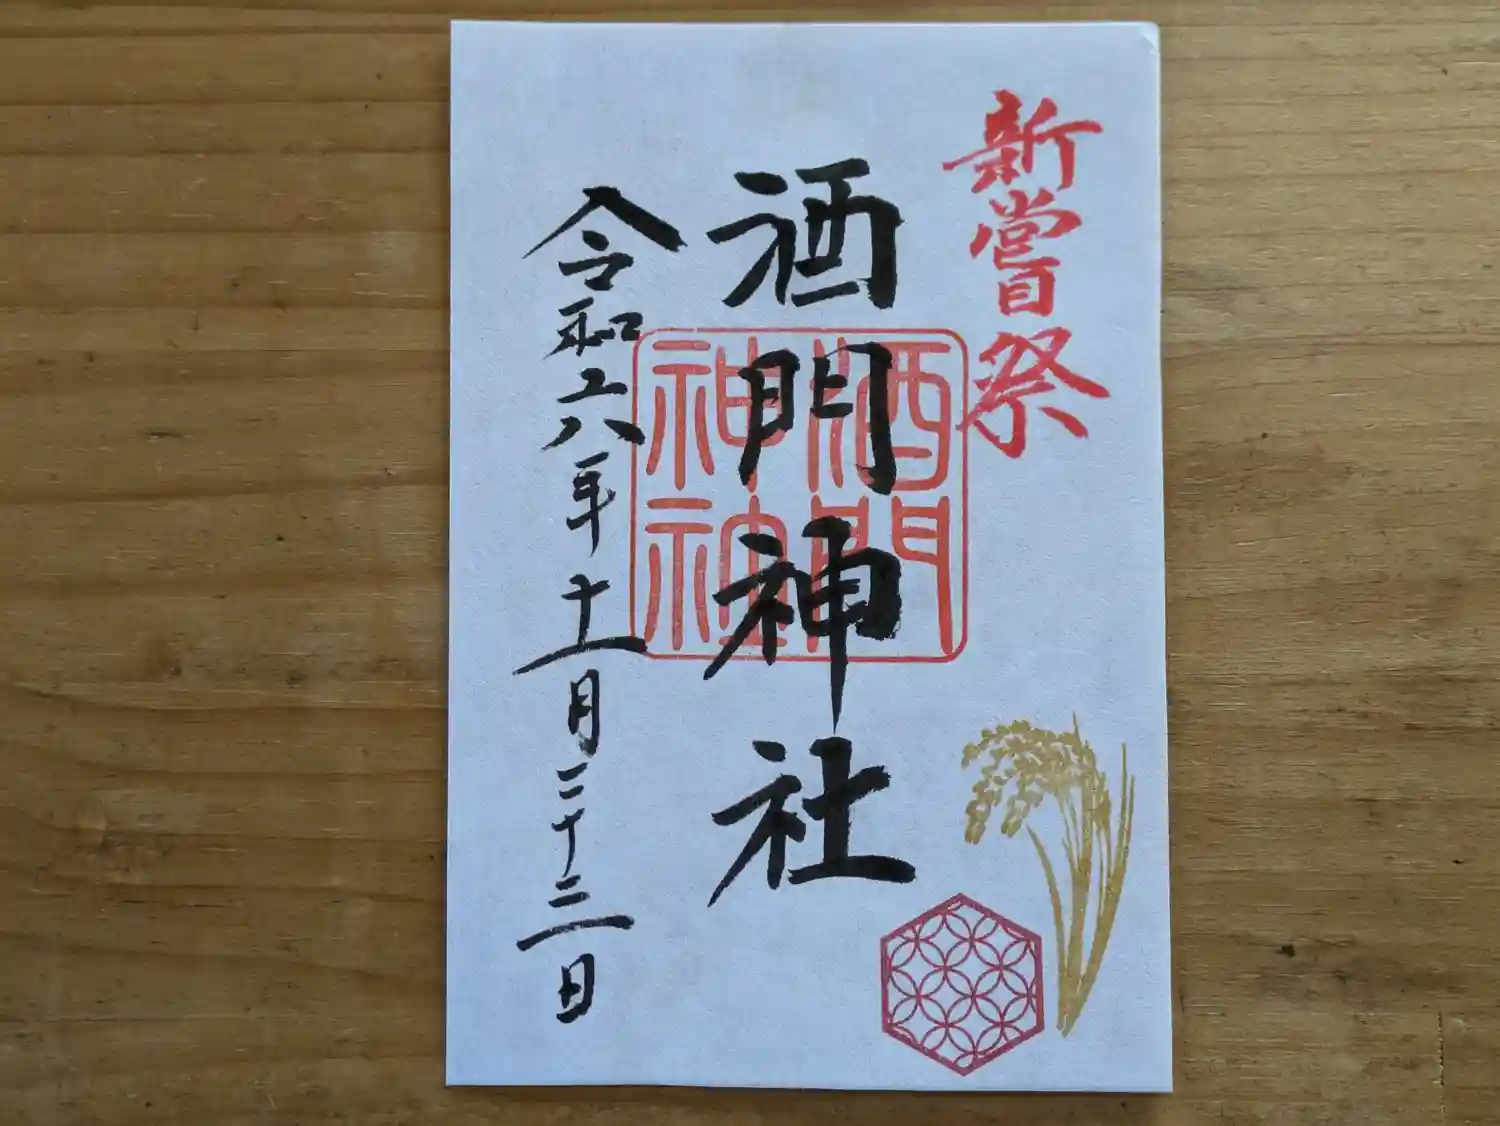 新嘗祭
酒門神社
酒門
神社
令和六年十一月二十三日